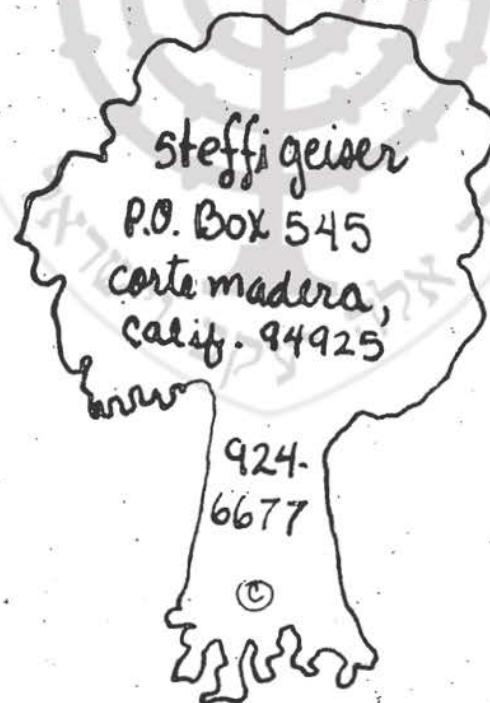 steffi geiser
P.O. Box 545
corte madera,
calif. 94925
924-
6677
©